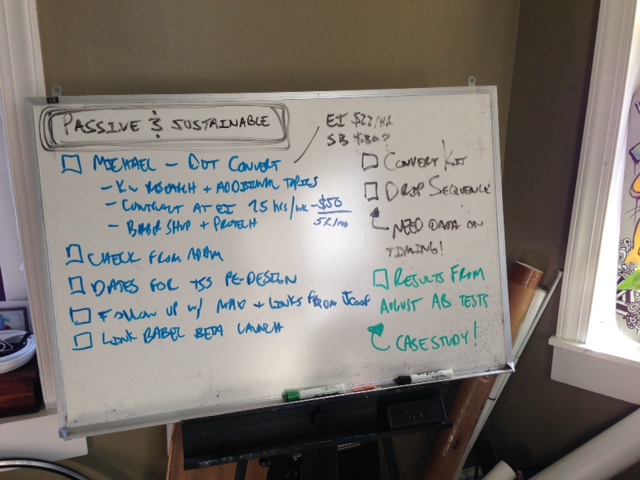 PASSIVE & SUSTAINABLE
EI $22/HR
SB $80?
MICHAEL - DOT CONVERT
- KW RESEARCH + ADDITIONAL TOPICS
- CONTRACT AT EI 25 hrs/wk - $50
5k/mo
- BARBER SHOP +
CHECK FROM ADAM
DATES FOR TSS RE-DESIGN
FOLLOW UP W/ MAX + LINKS FROM
LINK BABEL BETA LAUNCH
CONVERT KIT
DRIP SEQUENCE
NEED DATA ON
TIMING!
RESULTS FROM
AUGUST AB TESTS
CASE STUDY!